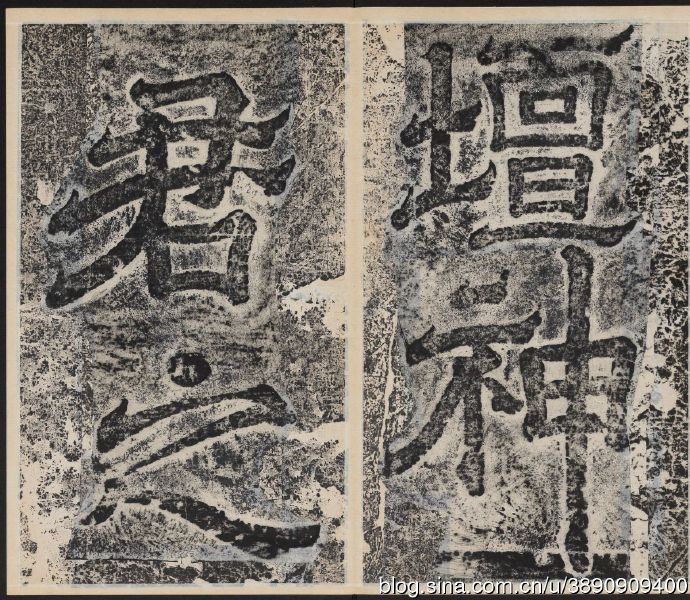 壇神
君之
blog.sina.com.cn/u/3890909400